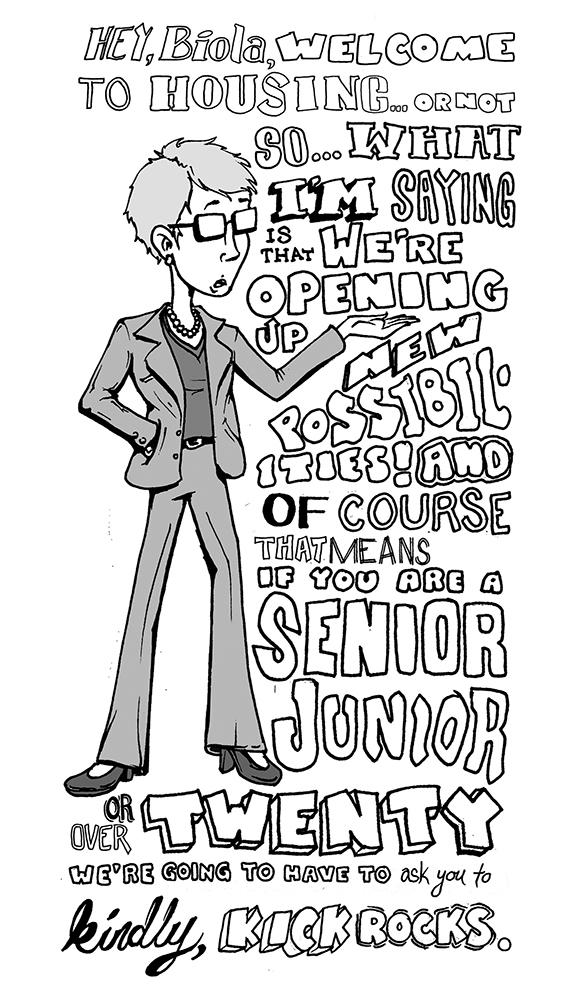 HEY, Biola, WELCOME
TO HOUSING... OR NOT
SO... WHAT
I'M SAYING
IS
THAT WE'RE
OPENING
UP
NEW
POSSIBIL-
ITIES! AND
OF COURSE
THAT MEANS
IF YOU ARE A
SENIOR
JUNIOR
OR
OVER TWENTY
WE'RE GOING TO HAVE TO ask you to
kindly, KICK ROCKS.